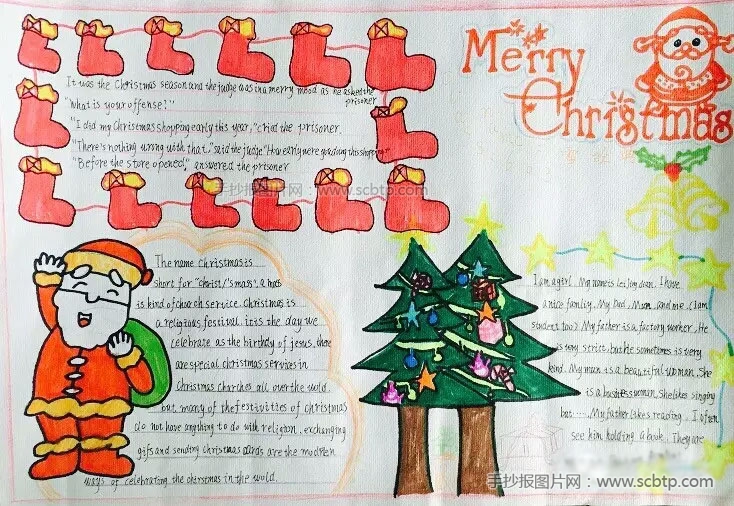 Merry
Christmas
It was the Christmas season and the judge was in a merry mood as he asked the
prisoner
"What is your offense!"
"I did my Christmas shopping early this year," cried the prisoner.
"There's nothing wrong with that," said the judge "How early were you doing this shopping"
"Before the store opened," answered the prisoner
手抄报图片网：www.scbtp.com
The name Christmas is
short for "christ/'s mass". a mas
is kind of church service. Christmas is
a religious festival. it is the day we
celebrate as the birthdy of jesus, there
are special christmas services in
Christmas charches all over the wold
but many of the festivities of christmas
do not have anything to do with religion. exchanging
gifs and sending christmas cards are the modren
ways of celebrating the chirstmas in the wold.
I am a girl. My name is
I have
a nice family. My Dad, Mum, and me. (I am
student too) My father is a factory worker. He
is very strict, but he sometimes is very
kind. My mum is a beautiful woman. She
is a bussines woman, she likes singing
but ...... My father likes reading. I often
see him holding a book. They are
手抄报图片网：www.scbtp.com